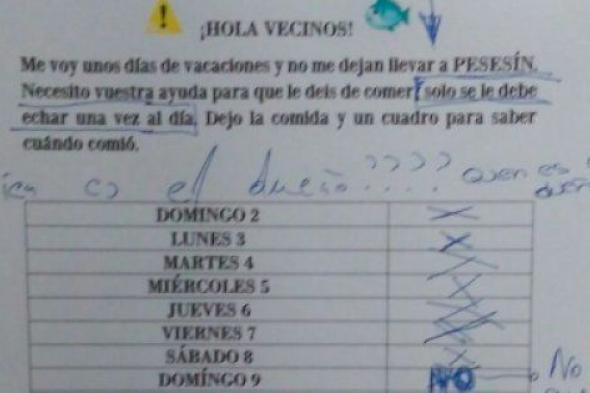 ¡HOLA VECINOS!
Me voy unos días de vacaciones y no me dejan llevar a PESESÍN.
Necesito vuestra ayuda para que le deis de comer, solo se le debe
echar una vez al día. Dejo la comida y un cuadro para saber
cuándo comió.
es el dueño ????....
DOMINGO 2
LUNES 3
MARTES 4
MIÉRCOLES 5
JUEVES 6
VIERNES 7
SÁBADO 8
DOMÍNGO 9 NO No